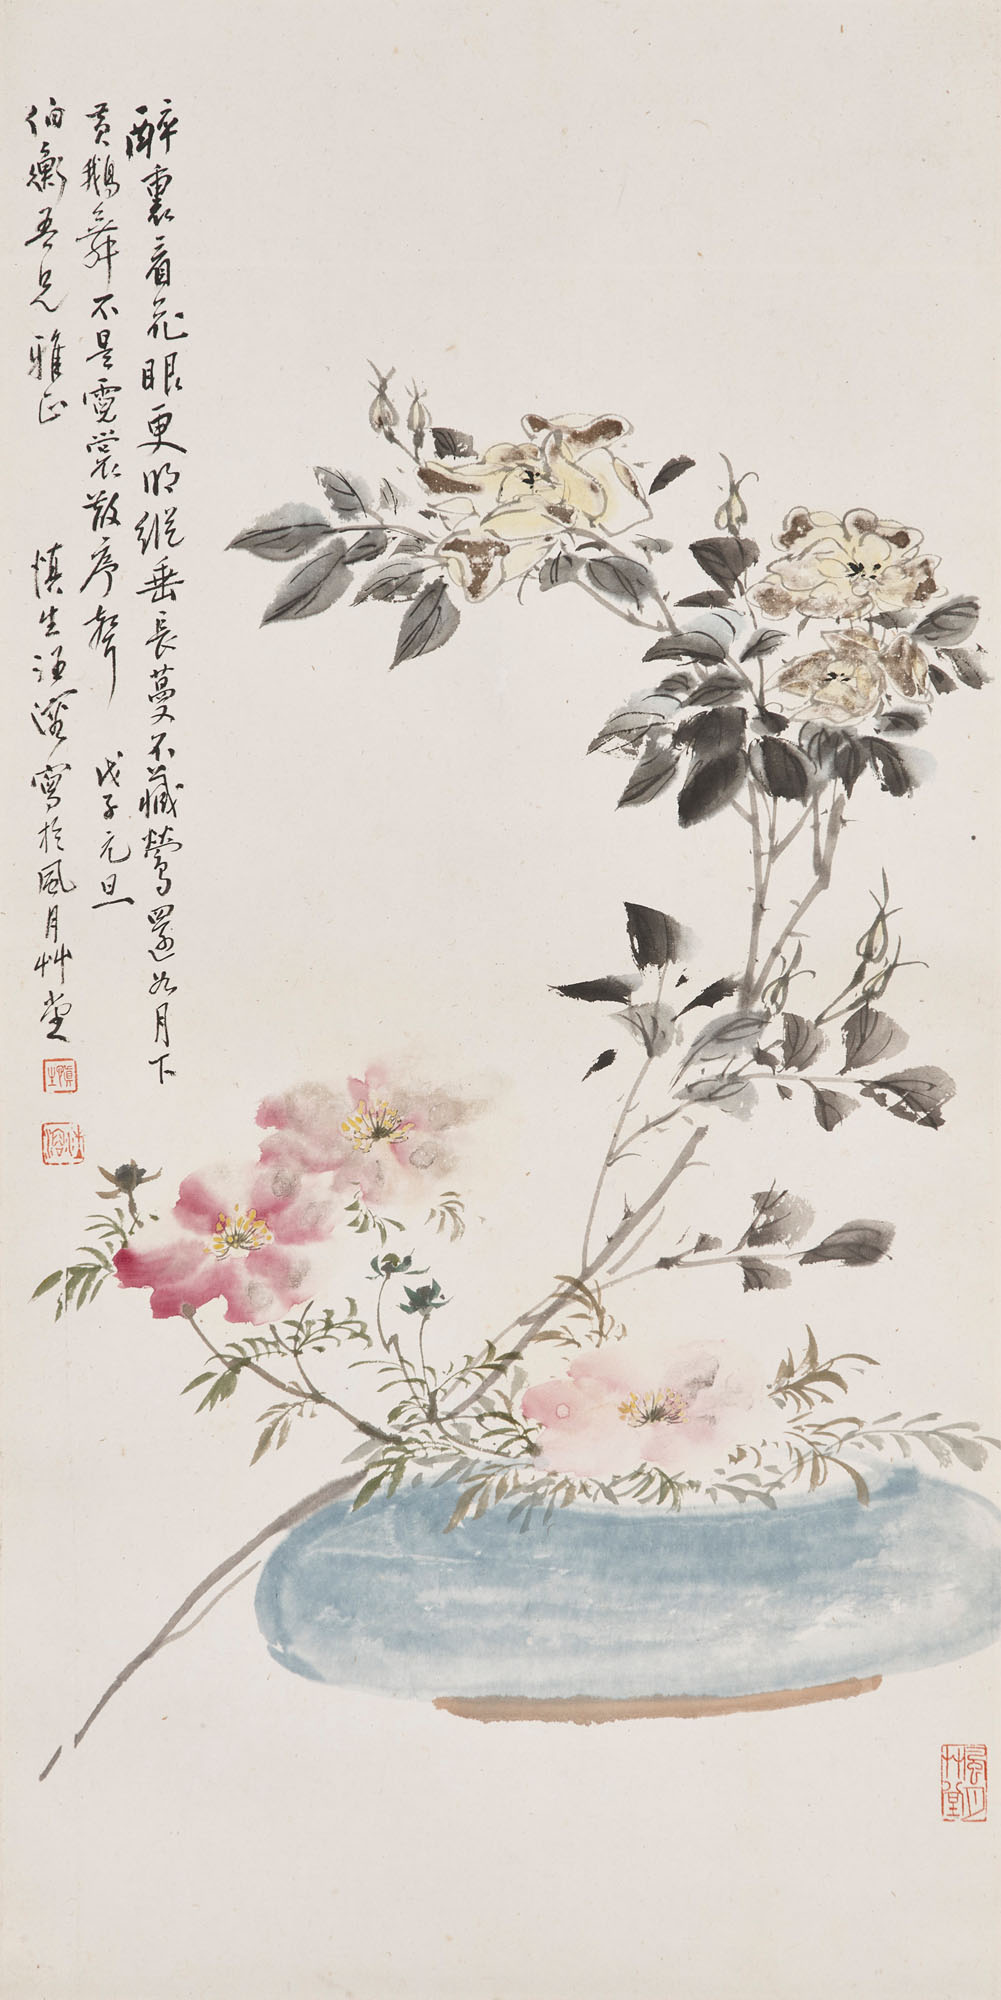 醉裏看花眼更明縱垂長蔓不藏鶯還如月下
黄鵝舞不是霓裳散序聲
戊子元旦
伯衡吾兄雅正
慎生汪溶寫於風月艸堂
慎生
汪溶
風月艸堂